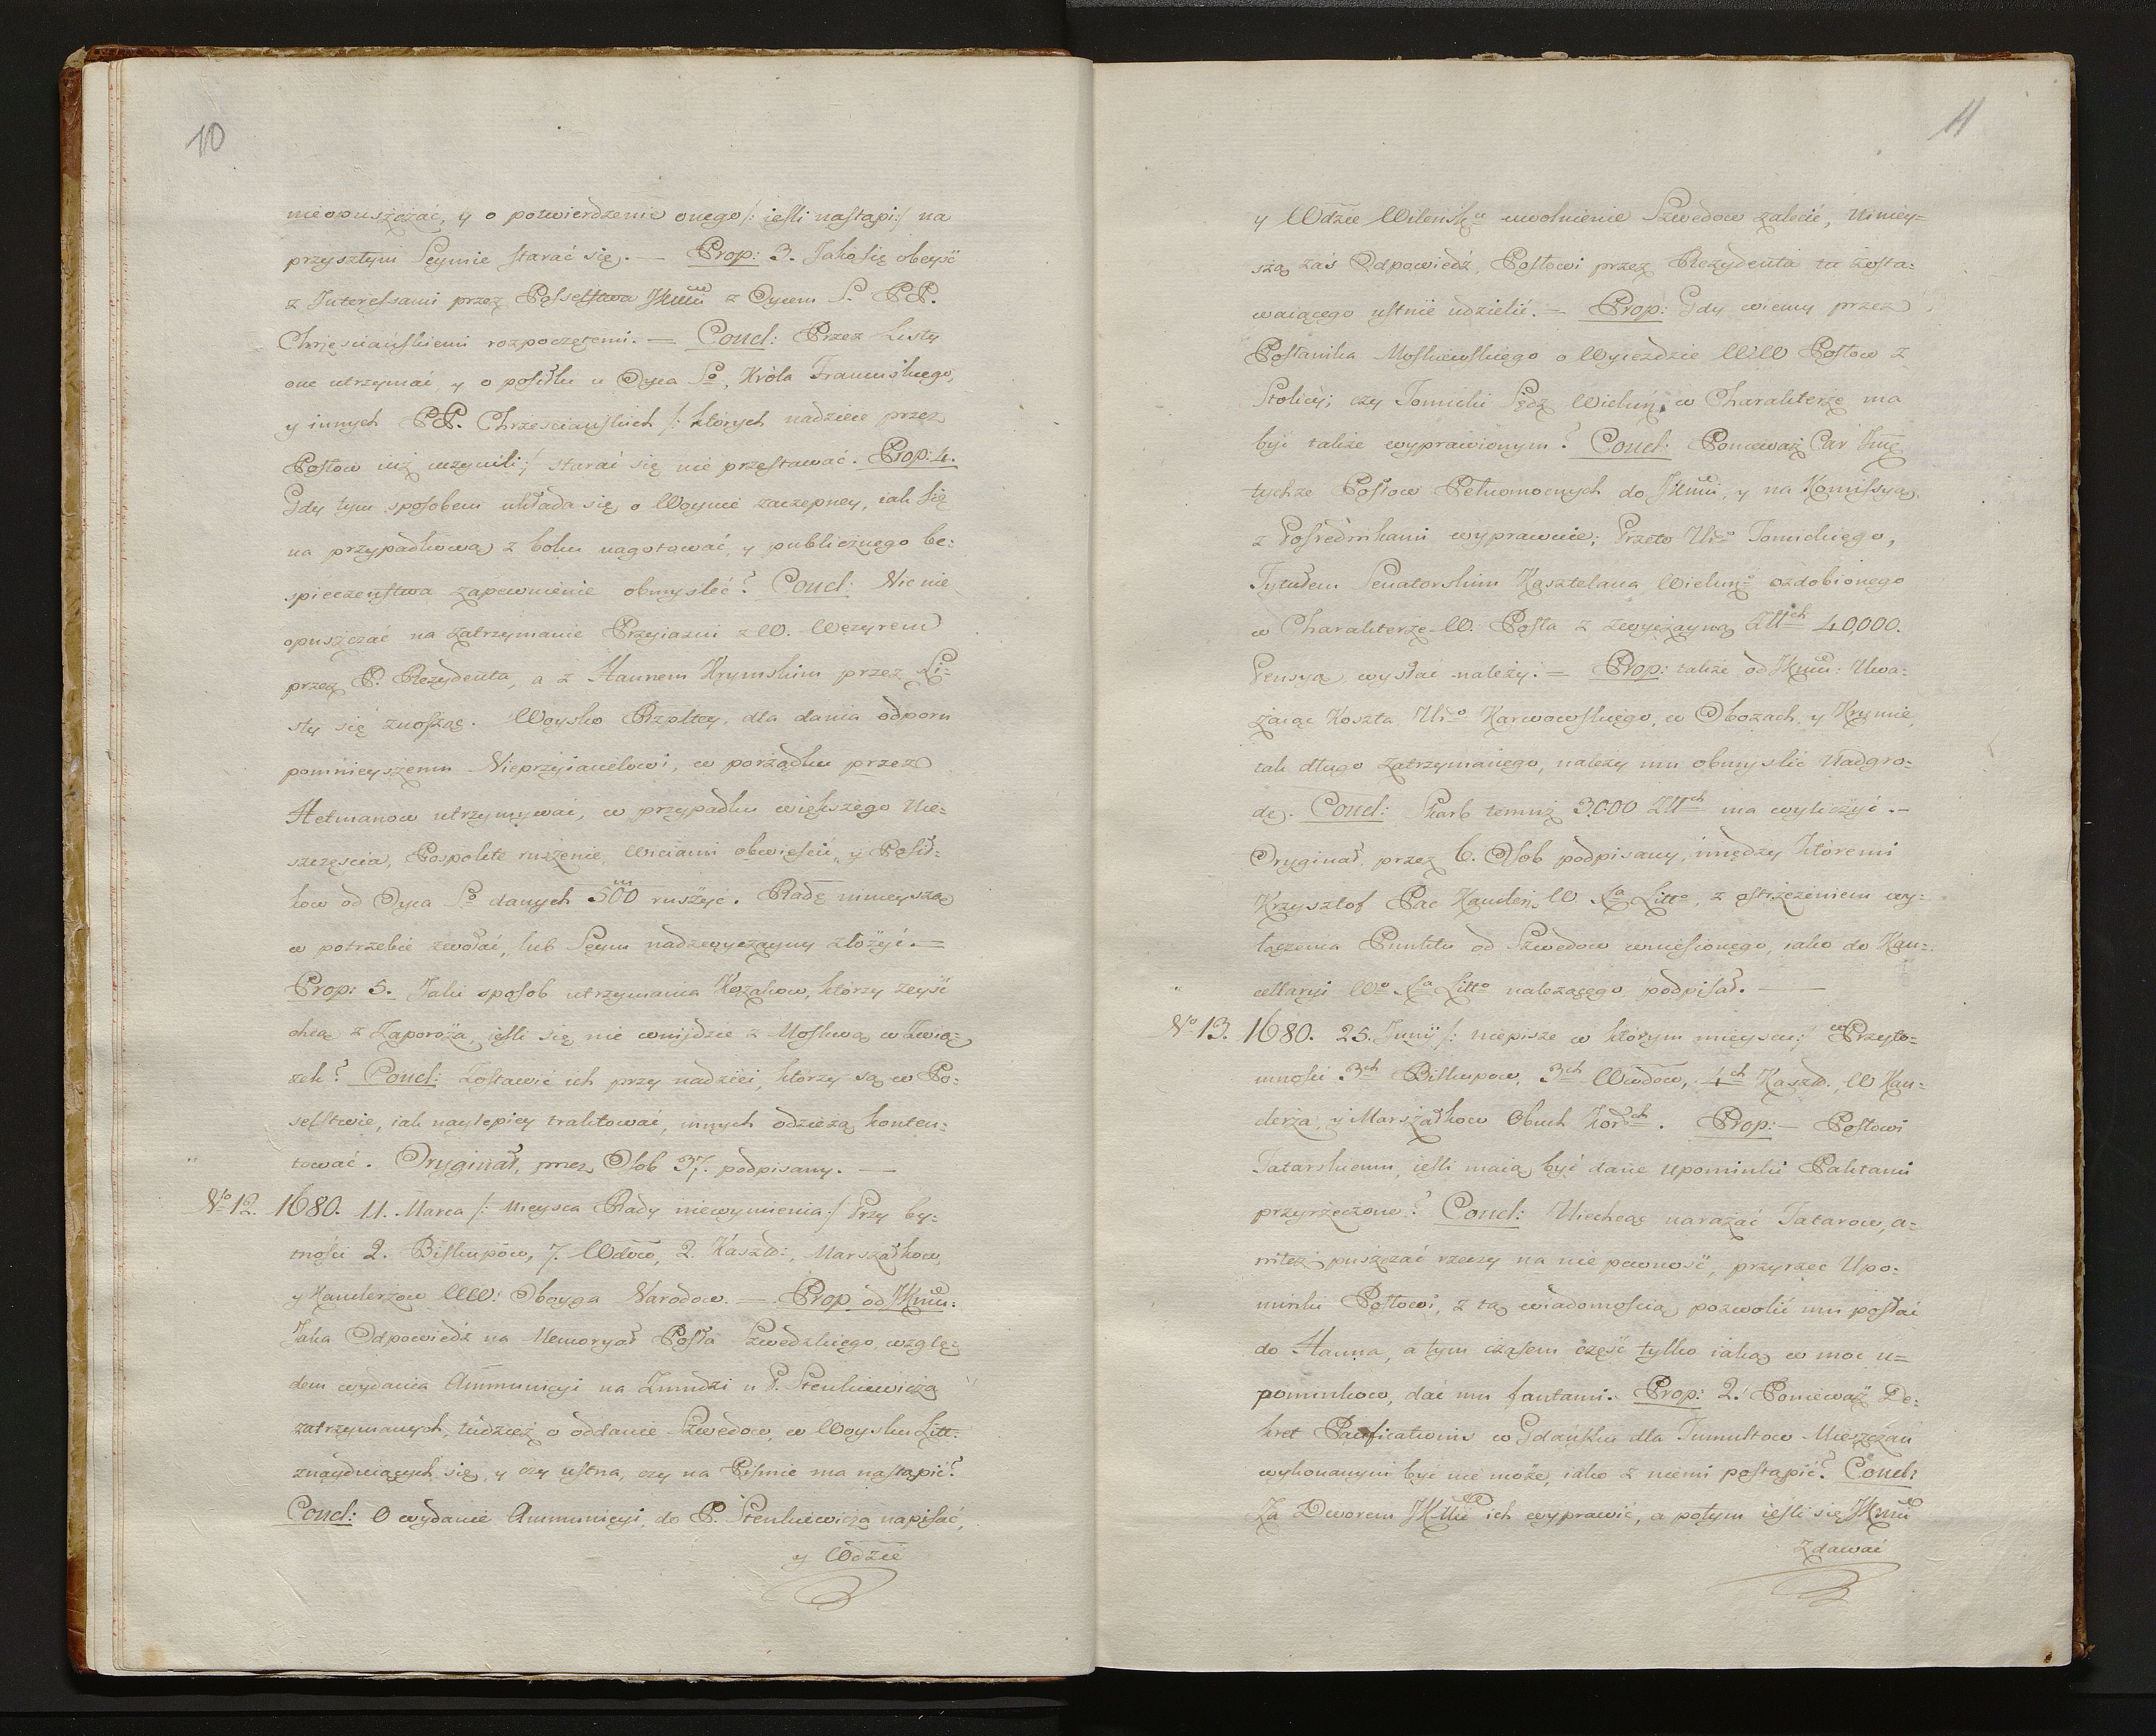 10
nieopuszczać, y o potwierdzenie onego /: iesli nastąpi :/ na
przyszłym Seymie starać się. — Prop: 3. Jako się obeyść
z Interessami przez Posselstwa JKMci z Oycem S. PP.
Chrześciańskiemi rozpoczętemi. — Concl: Przez Listy
one utrzymać, y o posiłku u Oyca So, Króla Francuskiego,
y innych PP. Chrześciańskich /: których nadzieie przez
Posłow iuż uczynili :/ starać się nie przestawać. Prop: 4.
Gdy tym sposobem układa się o Woynie zaczepney, iak się
na przypadkową z boku nagotować, y publicznego be=
spieczeństwa zapewnienie obmyslić? Concl: Nic nie
opuszczać na zatrzymanie Przyiazni z W. Wezyrem
przez P. Rezydenta, a z Hannem Krymskim przez Li=
sty się znosząc. Woysko Rzpltey, dla dania odporu
pomnieyszemu Nieprzyiacielowi, w porządku przez
Hetmanow utrzymywać, w przypadku większego Nie=
szczęscia, Pospolite ruszenie, Wiciami obwieścić, y Posił=
kow od Oyca So danych 500 m ruszyć. Radę ninieyszą
w potrzebie zwołać, lub Seym nadzwyczayny złożyć. —
Prop: 5. Jaki sposob utrzymania Kozakow, ktorzy zeyść
chcą z Zaporoża, iesli się nie wnijdzie z Moskwą w Zwią=
zek? Concl: Zostawić ich przy nadziei, ktorzy są w Po=
selstwie, iak naylepiey traktować, innych odzieżą konten=
tować. Oryginał, przez Osob 37. podpisany. —
No 12. 1680. 11. Marca /: Mieysca Rady niewymienia :/ Przy by=
tności 2. Biskupów, 7. Wdow, 2. Kaszt:, Marszałkow,
y Kanclerzow WW: Oboyga Narodow. — Prop od JKMci:
Jaka Odpowiedź na Memoryał Posła Szwedzkiego, wzglę=
dem wydania Ammunicyi na Zmudzi u P. Stenkiewicza
zatrzymanych, tudzież o oddanie Szwedow, w Woysku Litt:
znayduiących się, y czy ustna, czy na Pismie ma nastąpić?
Concl: O wydanie Ammunicyi, do P. Stenkiewicza napisać,
y Wdzie
11
y Wdzie Wileńsku uwolnienie Szwedow zalecić, Niniey=
szą zaś Odpowiedź, Posłowi przez Rezydenta tu zosta=
waiącego ustnie udzielić. — Prop: Gdy wiemy przez
Posłanika Moskiewskiego o Wyiezdzie WW Posłow z
Stolicy; czy Tomicki Sędz. Wieluń: w Charakterze ma
być także wyprawionym? Concl: Ponieważ Car Jmć
tychże Posłow Pełnomocnych do JKMci, y na Komissyą,
z Posrednikami wyprawuie; Przeto Uro Tomickiego,
Tytułem Senatorskim Kasztelana Wieluno ozdobionego
w Charakterze W. Posła z zwyczayną Złłch 40,000.
Pensyą, wysłać należy. — Prop: także od JKMci: Uwa=
żaiąc Koszta Uro Karwowskiego, w Obozach, y Krymie,
tak długo zatrzymanego, należy mu obmyslić Nadgro=
dę. Concl: Skarb temuż 3000 Złłch ma wyliczyć. —
Oryginał, przez 6. Osob podpisany, między któremi
Krzysztof Pac Kancler W Xa Litto, z ostrzeżeniem wy=
łączenia Punktu od Szwedow wniesionego, iako do Kan=
cellaryi Wo Xa Litto należącego podpisał. —
No 13. 1680. 25. Junÿ /: niepisze w ktorym mieyscu :/ w Przyto=
mności 3ch Biskupow, 3ch Wwdow, 4ch Kaszt. W Kan=
clerza, y Marszałkow Obuch Kordch. Prop: — Posłowi
Tatarskiemu, iesli maią być dane upominki Paktami
przyrzeczone? Concl: Niechcąc narażać Tatarow, a=
niteż puszczać rzeczy na nie pewność, przyrzec Upo=
minki Posłowi, z tą wiadomością pozwolić mu posłać
do Hanna, a tym czasem część tylko iaką w moc u=
pominkow, dać mu fantami. Prop: 2. Ponieważ De=
kret Pacificationis w Gdańsku dla Tumultow Mieszczan
wykonanym być nie może, iako z niemi postąpić? Concl:
Za Dworem JKMci ich wyprawić, a potym iesli się JKMci
zdawać